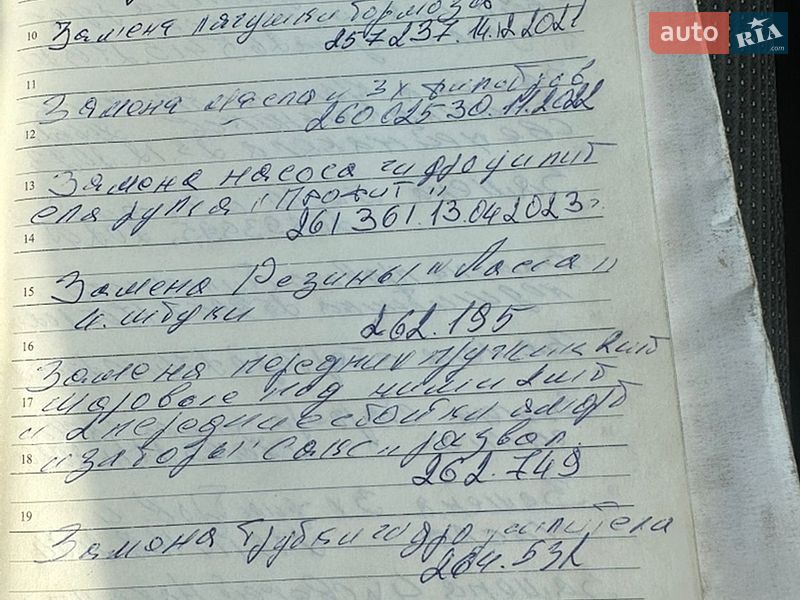 auto RIA .com
10 Замена лягушки тормозов
257237.14.12.2021
11
Замена масла и 3х фильтров
260025 30.11.2022
12
13 Замена насоса гидроусилит
еля руля "Профит"
261361.13.04 2023г.
14
15 Замена Резины "Ласса"
4. штуки 262.195
16
Замена передних пружин 2шт
17 шаровые под ними 2шт
и 2 передние стойки аморт
18 и "Сакс" развал.
262.749
19
Замена Трубки гидроусилителя
264.532